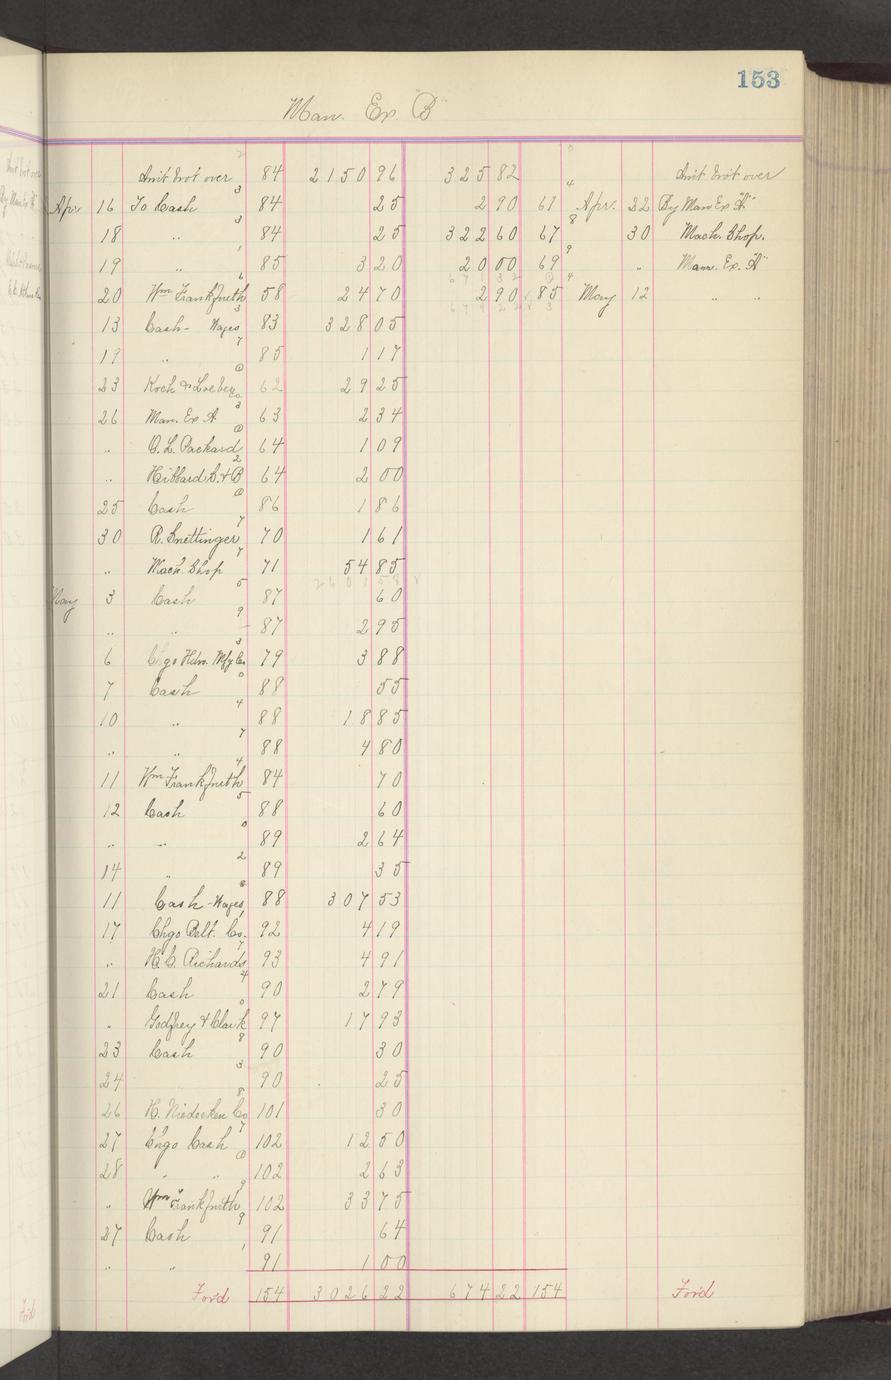 153
Man. Ex. "B"
Am't bro't over 84 2150 96 325 82 Am't bro't over
Apr 16 To Cash 84 25 2 90 67 Apr. 22 By Man Ex "A"
18 " 84 25 322 60 67 30 Mach. Shop.
19 " 85 3 20 20 00 69 " Man. Ex. "A"
20 Wm Frankfurth 58 24 70 2 90 85 May 12 " "
13 Cash - Wages 83 328 05
19 " 85 1 17
23 Koch & Loeber Co. 62 29 25
26 Man. Ex A 63 2 34
" O. L. Packard 64 1 09
" Hibbard S. & B 64 2 00
25 Cash 86 1 86
30 R. Snettinger 70 1 61
" Mach. Shop 71 54 85
2601 58
May 3 Cash 87 60
" " 87 2 95
6 C'go Hdw. Mfg Co. 79 3 88
7 Cash 88 55
10 " 88 18 85
" " 88 4 80
11 Wm Frankfurth 84 70
12 Cash 88 60
" " 89 2 64
14 " 89 35
11 Cash - Wages 88 307 53
17 Chgo Belt. Co. 92 4 19
" H. C. Richards 93 4 91
21 Cash 90 2 79
" Godfrey & Clark 97 17 93
23 Cash 90 30
24 90 25
26 H. Niedecken Co 101 30
27 Chgo Cash 102 12 50
28 " " 102 2 63
" Wm Frankfurth 102 33 75
27 Cash 91 64
" " 91 1 00
For'd 154 3026 22 674 22 154 For'd